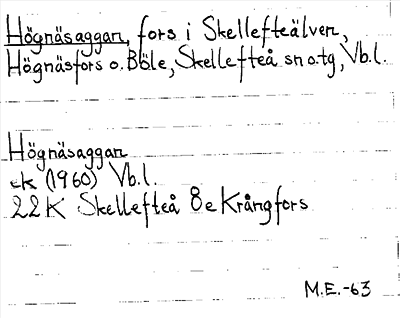 Högnäsaggan, fors i Skellefteälven,
Högnäsfors o. Böle, Skellefteå sn o. tg, Vb. l.
Högnäsaggan
ek (1960) Vb. l.
22K Skellefteå 8e Krångfors
M.E.-63